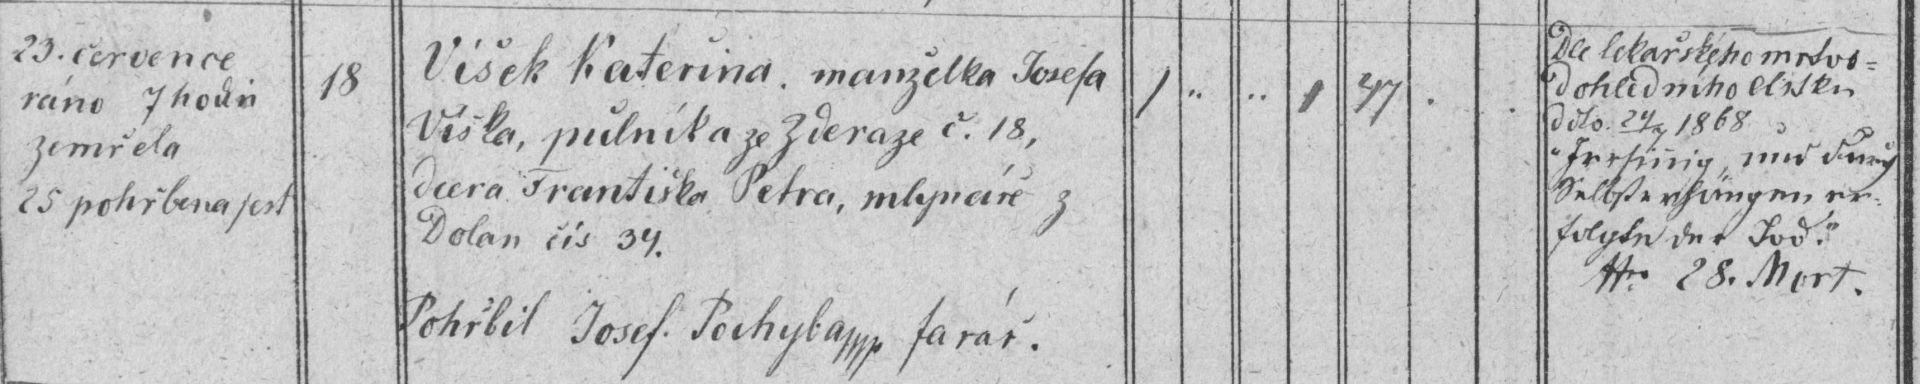 23. července
ráno 7 hodin
zemřela
25 pohřbena jest
18
Víšek Kateřina. manželka Josefa
Víška, půlníka ze Zderaze č. 18,
dcera Františka Petra, mlynáře z
Dolan čís 34.
Pohřbil Josef Pochyba mpp farář.
1 " .. 1 47 .
Dle lekařského mrtvo=
dohledního lístku
ddto. 24/7 1868
"Irrsinnig, und durch
Selbsterhängen er-
folgte der Tod."
Nro 28. Mort.